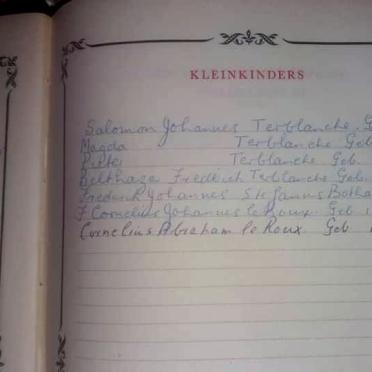 KLEINKINDERS
Salomon Johannes Terblanche. G
Magda Terblanche Geb
Pieter Terblanche Geb.
Belthazer Fredrich Terblanche Geb.
Frederik Johannes Stefanus Botha
F Cornelius Johannes le Roux. Geb 1
Cornelius Abraham le Roux Geb 1